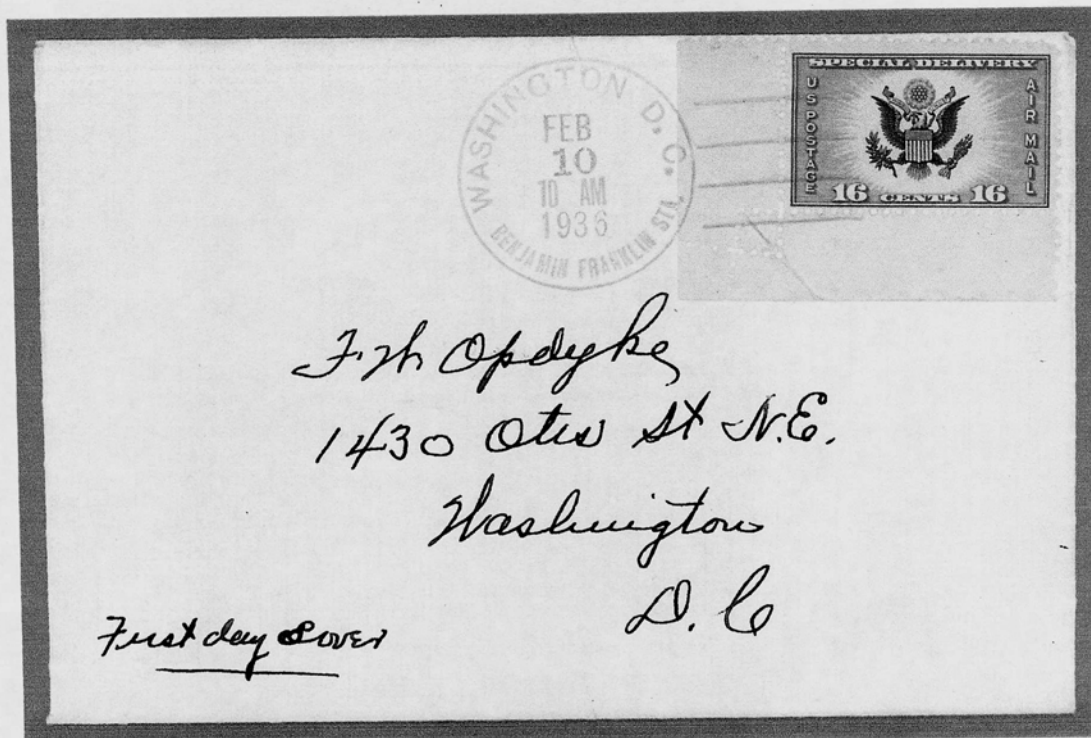 WASHINGTON D. C.
FEB
10
10 AM
1936
BENJAMIN FRANKLIN STA.
SPECIAL DELIVERY
US POSTAGE
AIR MAIL
16 CENTS 16
Opdyke
1430 Otis St N.E.
Washington
D. C
First day Cover